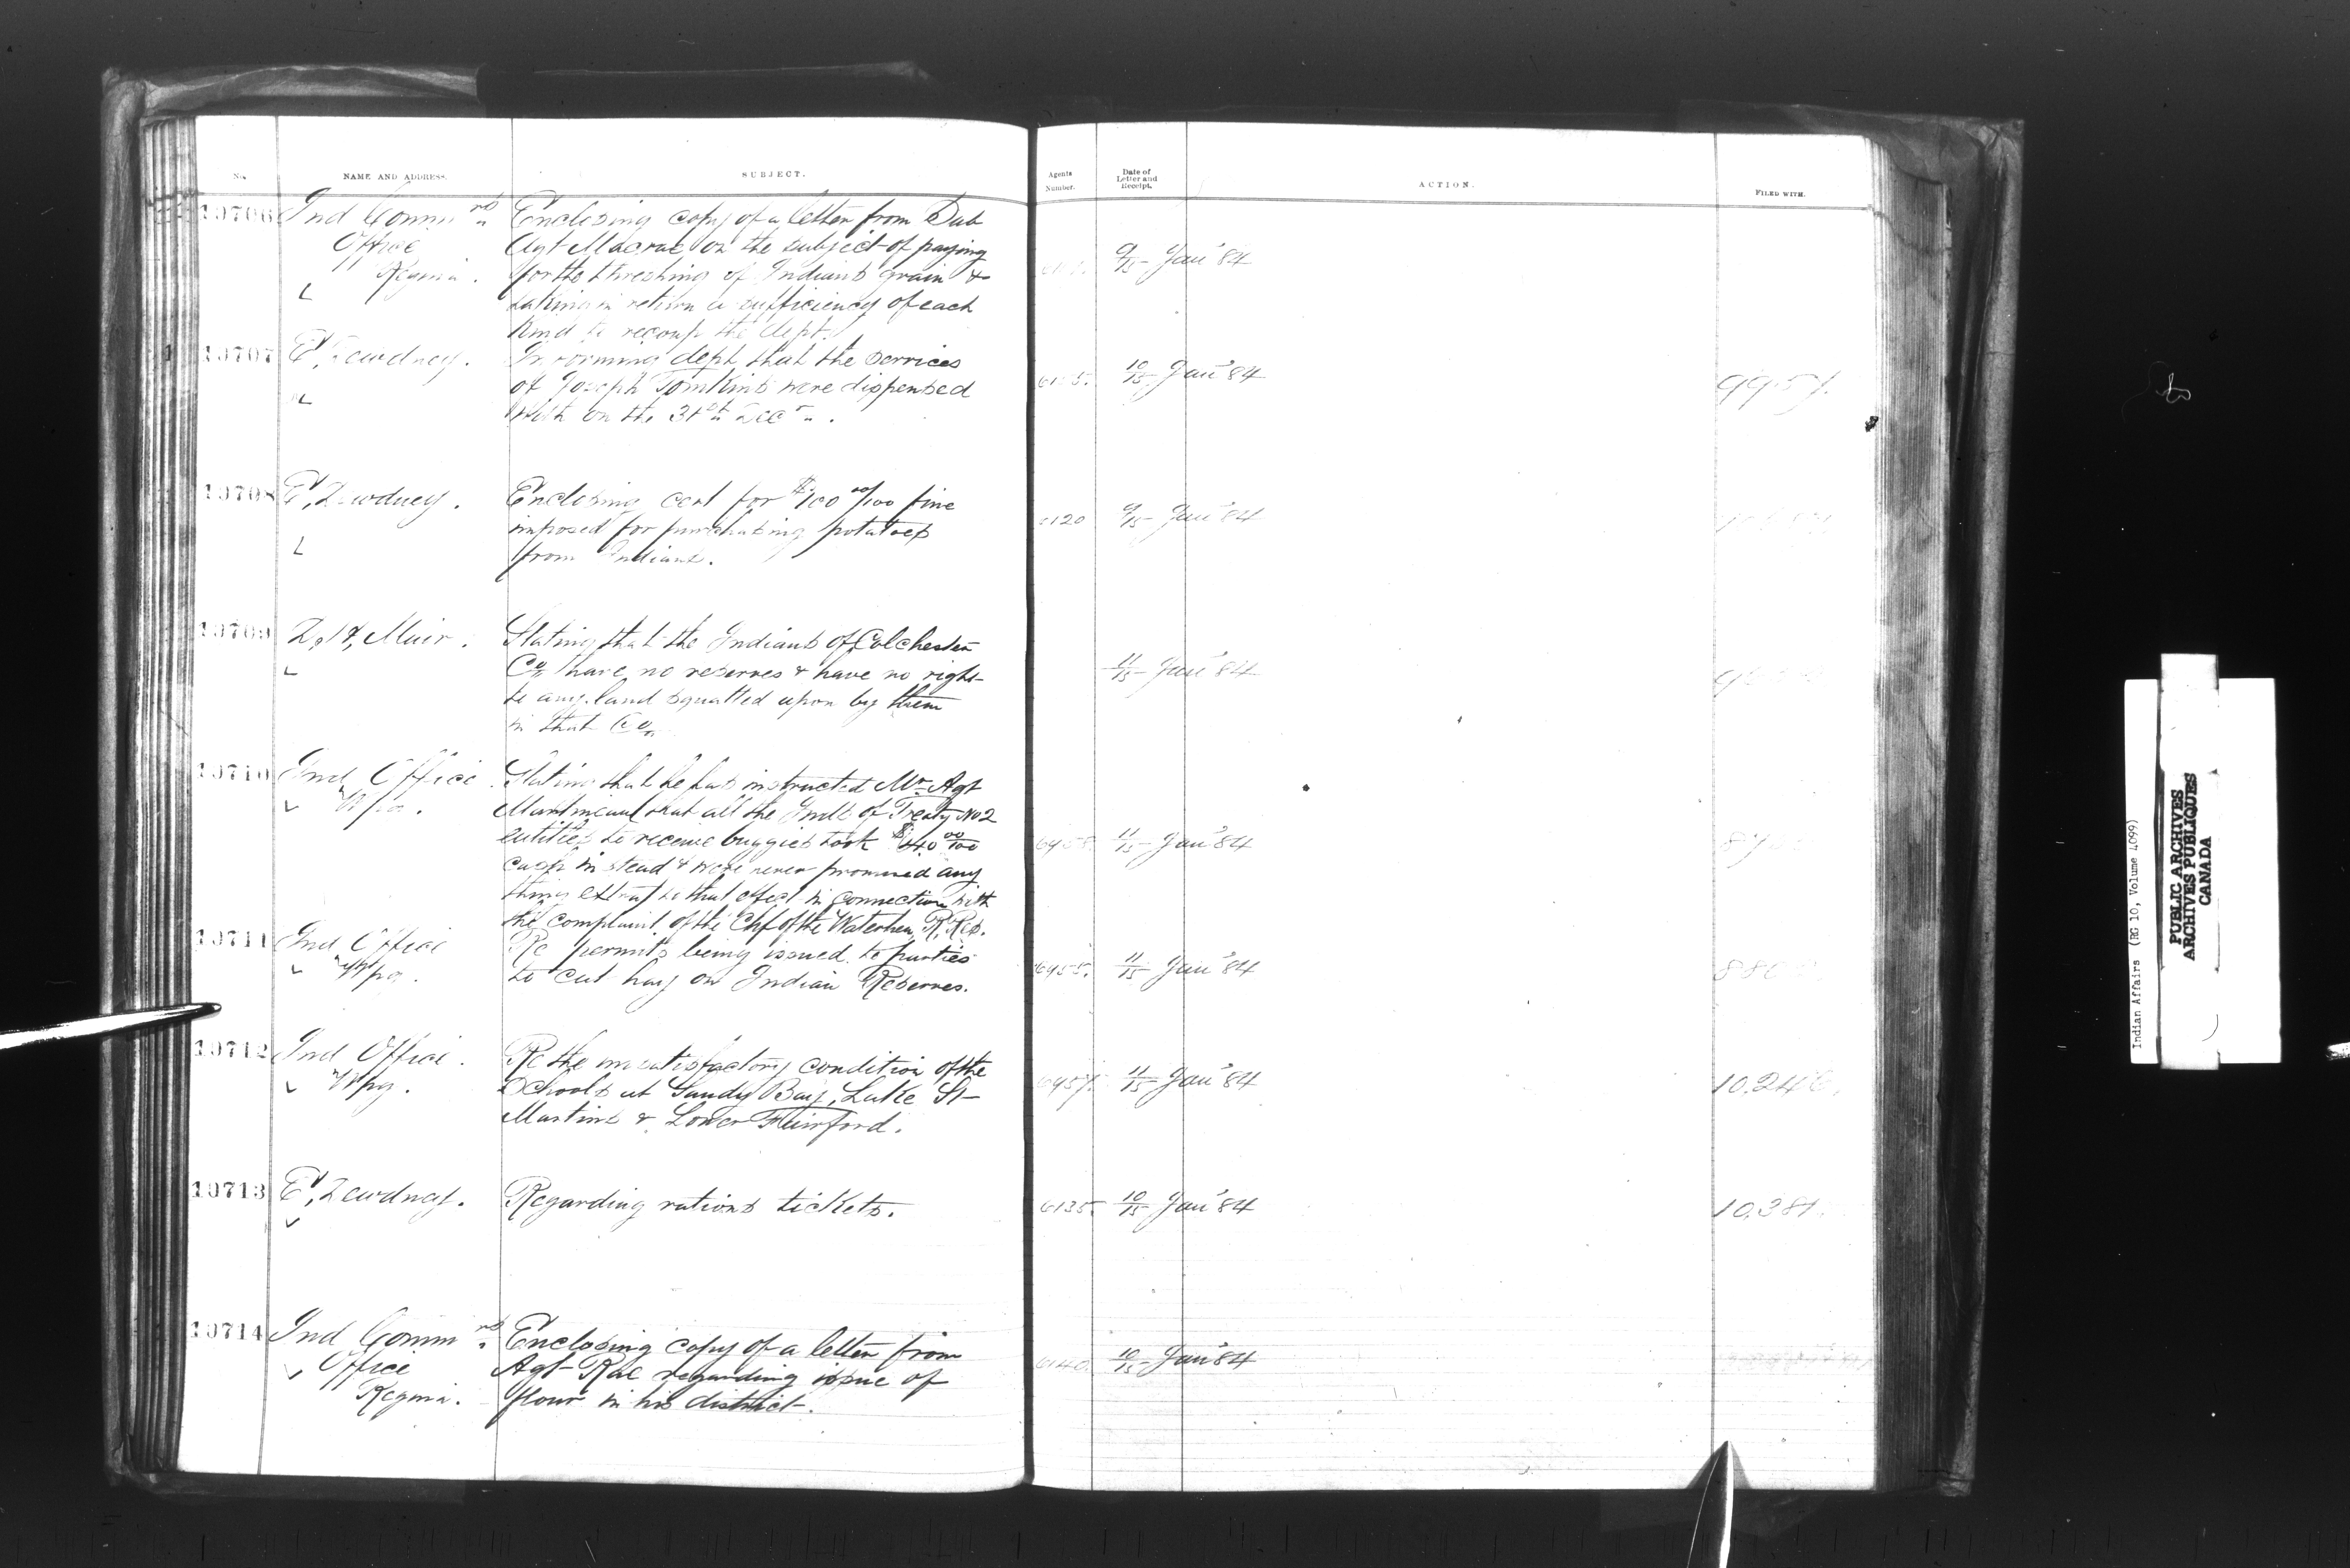 No. NAME AND ADDRESS. SUBJECT. Agents Number. Date of Letter and Receipt. ACTION. FILED WITH.
10706 Ind Commrs Enclosing copy of a letter from Sub
Office Agt Macrae on the subject of paying 9/15 Jany 84
Regina. for the threshing of Indians grain &
taking in return a sufficiency of each
kind to recoup the dept.
10707 E, Dewdney. Informing dept that the services
of Joseph Tomkins were dispensed 10/15 Jany 84
with on the 31st Decr.
10708 E, Dewdney. Enclosing cert for $100 00/100 fine
imposed for purchasing potatoes 9/15 Jany 84
from Indians.
10709 D, H, Muir. Stating that the Indians of Colchester
Co. have no reserves & have no right 11/15 Jany 84
to any land squatted upon by them
in that Co.
10710 Ind Office Stating that he has instructed Mr Agt
Wpg. Martineau that all the Inds of Treaty No 2
entitled to receive buggies took $40 00/100 11/15 Jany 84
cash instead & were never promised any
thing extra to that effect in connection with
the complaint of the Chf of the Waterhen R. Res.
10711 Ind Office Re permits being issued to parties
Wpg. to cut hay on Indian Reserves. 6955. 11/15 Jany 84
10712 Ind Office. Re the unsatisfactory condition of the
Wpg. Schools at Sandy Bay, Lake St 6957. 11/15 Jany 84
Martins & Lower Fairford.
10713 E, Dewdney. Regarding rations tickets. 6135. 10/15 Jany 84 10,381.
10714 Ind Commrs Enclosing copy of a letter from
Office Agt Rae regarding issue of 6140. 10/15 Jany 84
Regina. flour in his district.
Indian Affairs (RG 10, Volume 4099)
PUBLIC ARCHIVES
ARCHIVES PUBLIQUES
CANADA